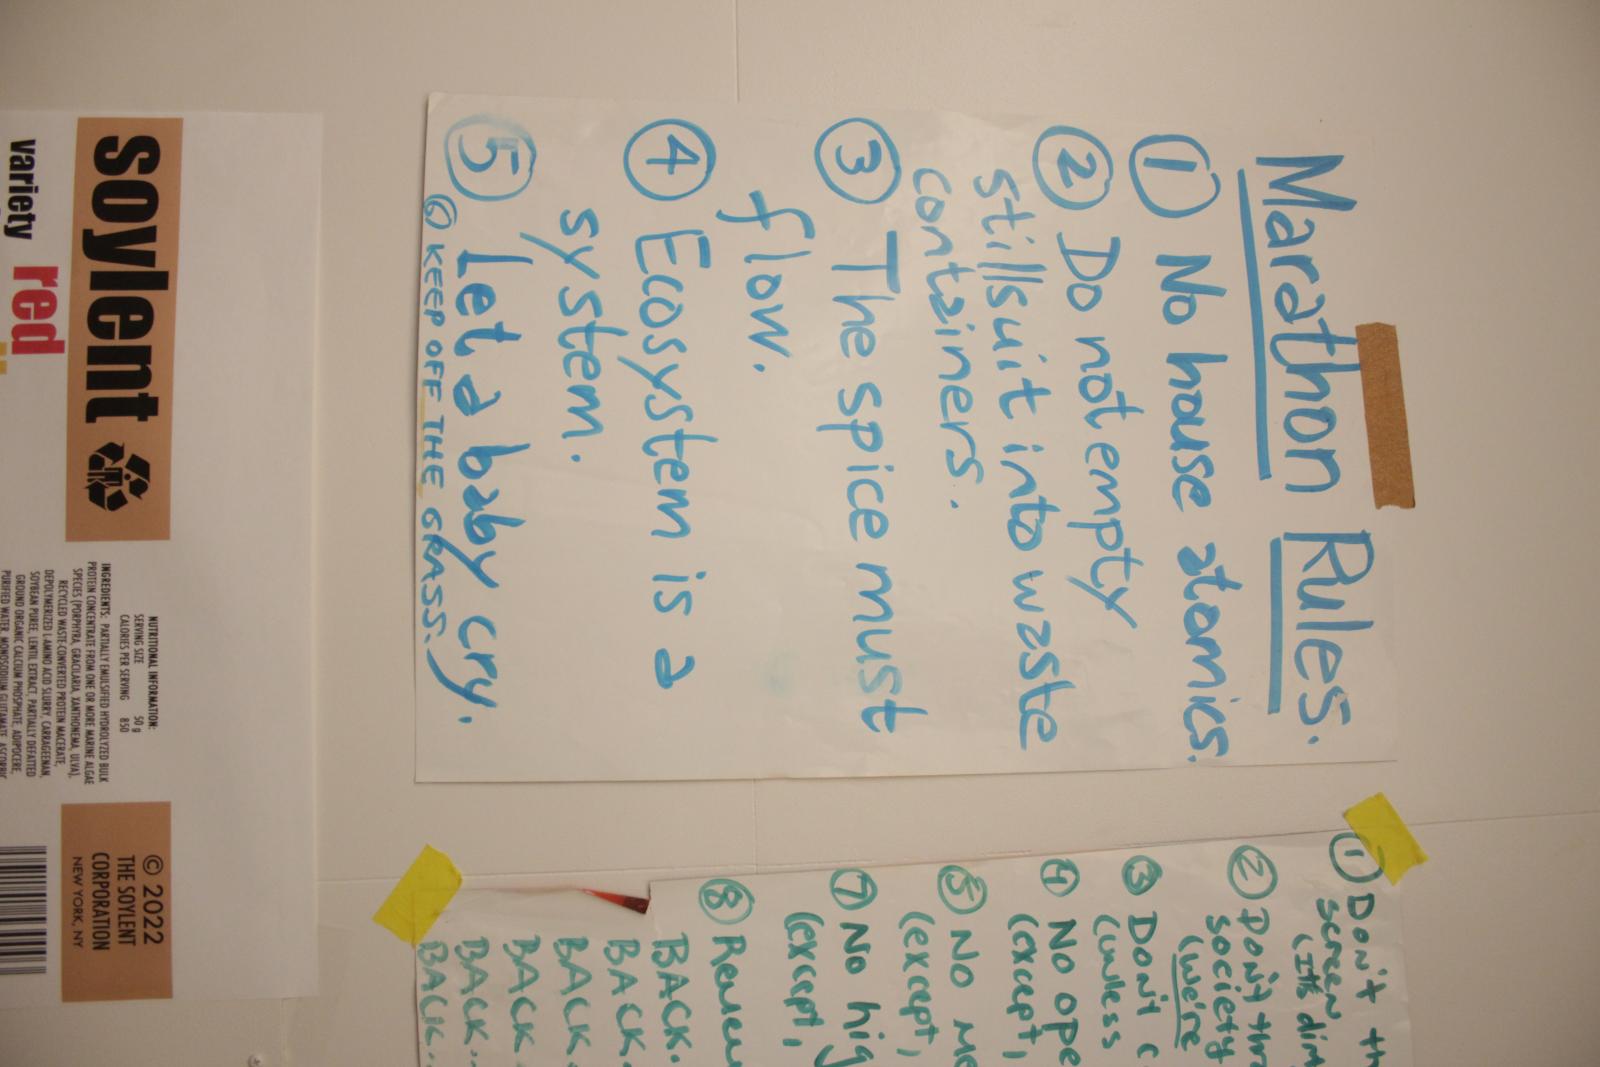 Marathon Rules.
① No house atomics.
② Do not empty
stillsuit into waste
containers.
③ The spice must
flow.
④ Ecosystem is a
system.
⑤ Let a baby cry.
⑥ KEEP OFF THE GRASS.
① Don't
screen,
(It's
② Don't
society
(We're
③ Don't
(unless
④ No
(except,
⑤ No
(except,
⑦ No
(except,
⑧
BACK.
BACK.
BACK.
BACK.
BACK.
BACK.
soylent
variety
red
NUTRITIONAL INFORMATION:
SERVING SIZE 50 g
CALORIES PER SERVING 850
INGREDIENTS: PARTIALLY EMULSIFIED HYDROLYZED BULK
PROTEIN CONCENTRATE FROM ONE OR MORE MARINE ALGAE
SPECIES (PORPHYRA, GRACILARIA, XANTHONEMA, ULVA),
RECYCLED WASTE-CONVERTED PROTEIN MACERATE,
DEPOLYMERIZED L-AMINO ACID SLURRY, CARRAGEENAN,
SOYBEAN PUREE, LENTIL EXTRACT, PARTIALLY DEFATTED
GROUND ORGANIC CALCIUM PHOSPHATE, ADIPOCERE,
PURIFIED WATER, MONOSODIUM GLUTAMATE,
© 2022
THE SOYLENT
CORPORATION
NEW YORK, NY